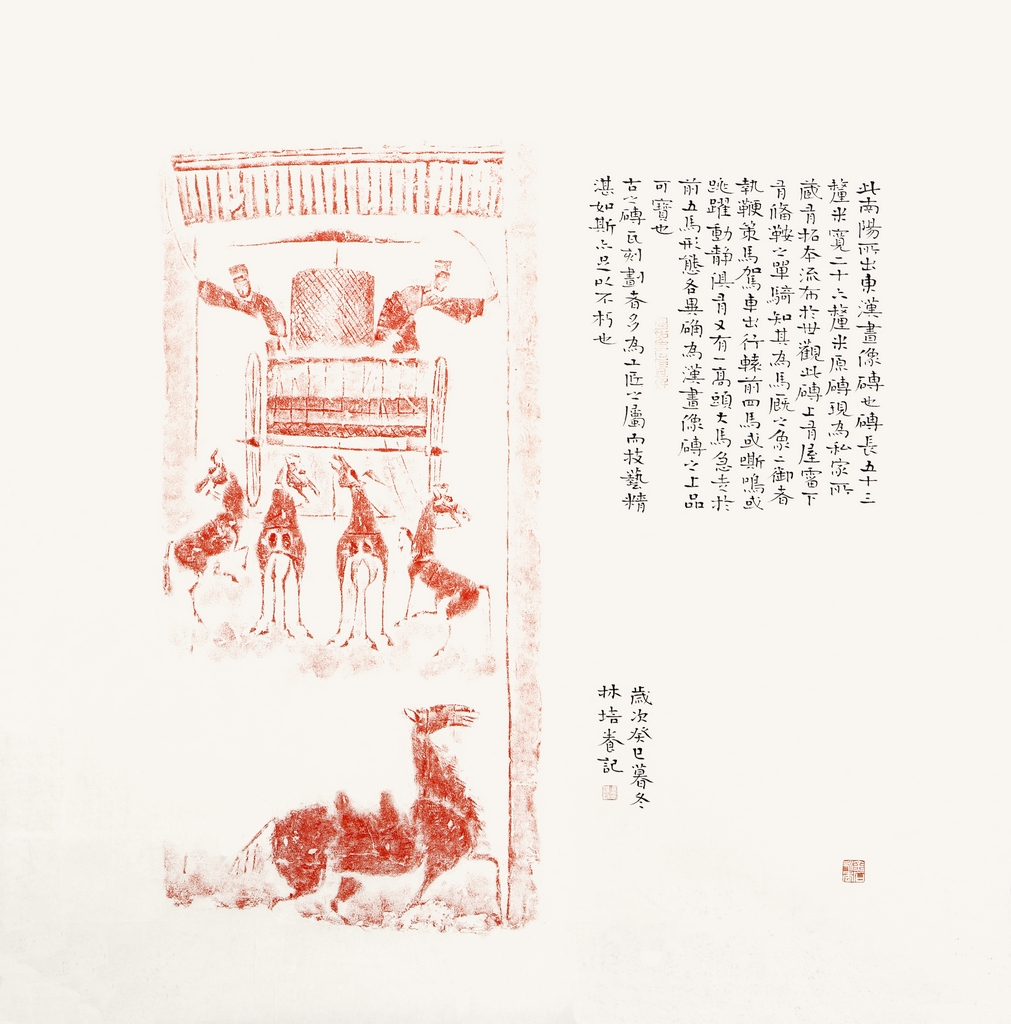 此南陽所出東漢畫像磚也磚長五十三
釐米寬二十六釐米原磚現為私家所
藏有拓本流布於世觀此磚上有屋霤下
有備鞍之單騎知其為馬厩之象二御者
執鞭策馬駕車出行轅前四馬或嘶鳴或
跳躍動靜俱有又有一高頭大馬急走於
前五馬形態各異確為漢畫像磚之上品
可寶也
古之磚瓦刻劃者多為工匠之屬而技藝精
湛如斯亦足以不朽也
歲次癸巳暮冬
林培養記